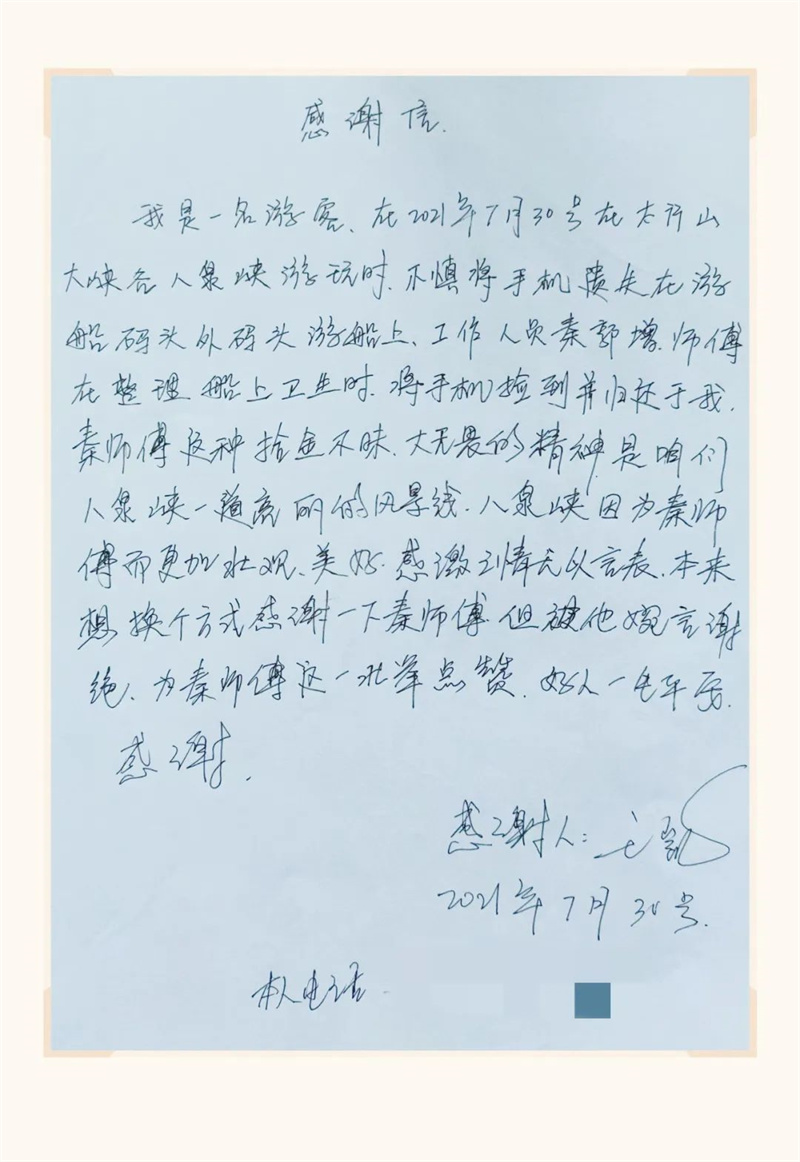 感谢信.
我是一名游客、在2021年7月30号在太行山
大峡谷八泉峡游玩时.不慎将手机遗失在游
船码头外码头游船上、工作人员秦郭增.师傅
在整理船上卫生时.将手机捡到并归还于我.
秦师傅这种拾金不昧.大无畏的精神.是咱们
八泉峡一道亮丽的风景线.八泉峡因为秦师
傅而更加壮观、美好.感激之情无以言表、本来
想换个方式感谢一下秦师傅.但被他婉言谢
绝、为秦师傅这一壮举点赞.好人一生平安.
感谢.
感谢人:王
2021年7月30号.
本人电话.